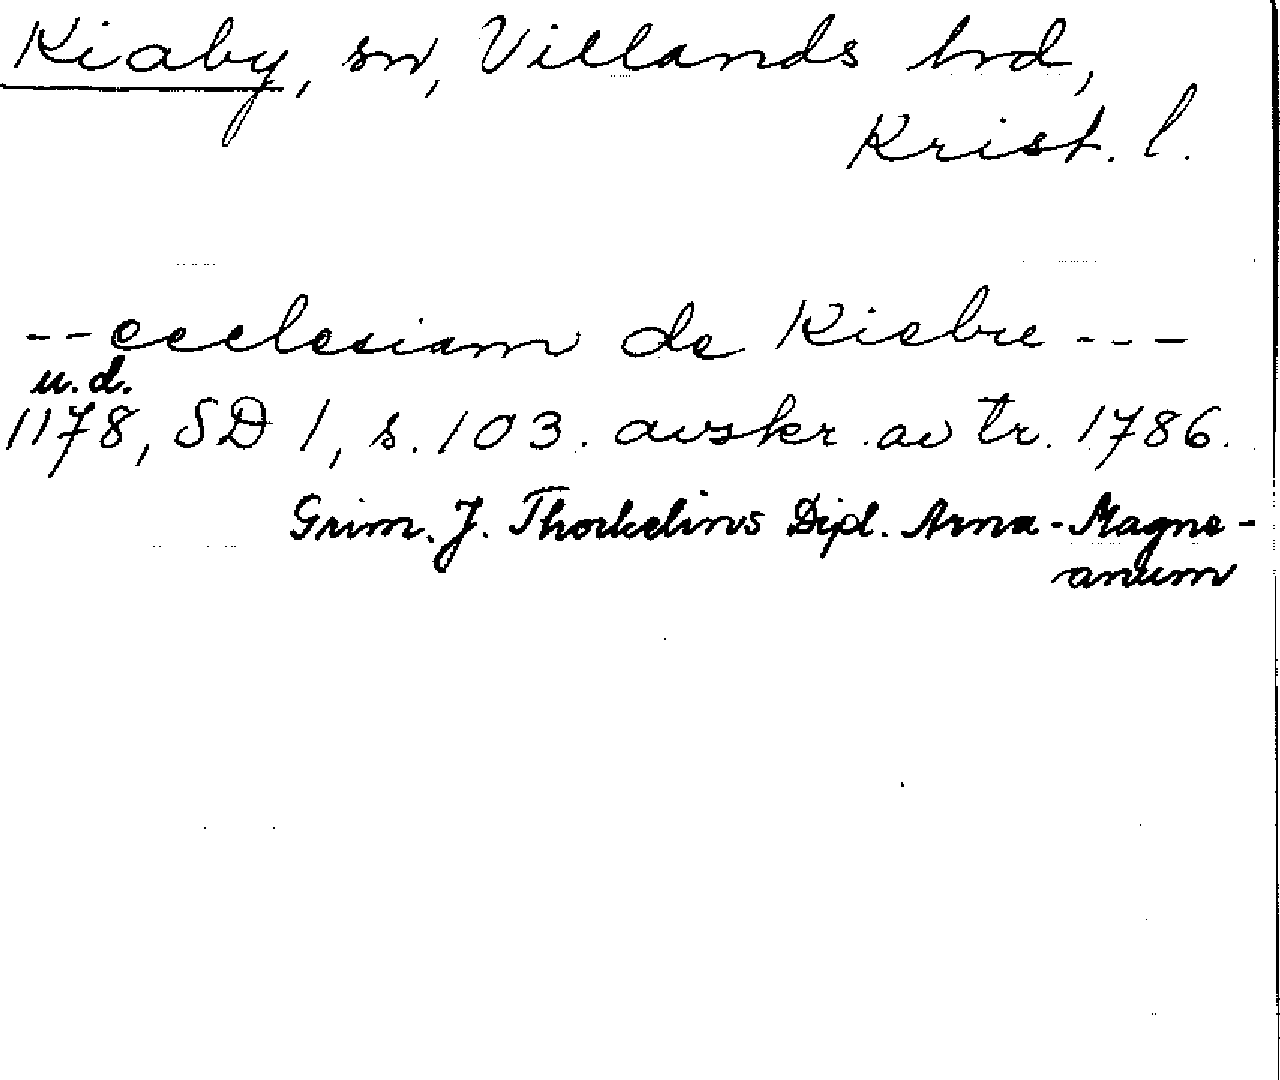 Kiaby, sn, Villands hrd,
Krist. l.
--ecclesiam de Kiebre---
u.d.
1178, SD 1, s. 103. avskr. av tr. 1786.
Grim. J. Thorkelins Dipl. Arna-Magne-
anum